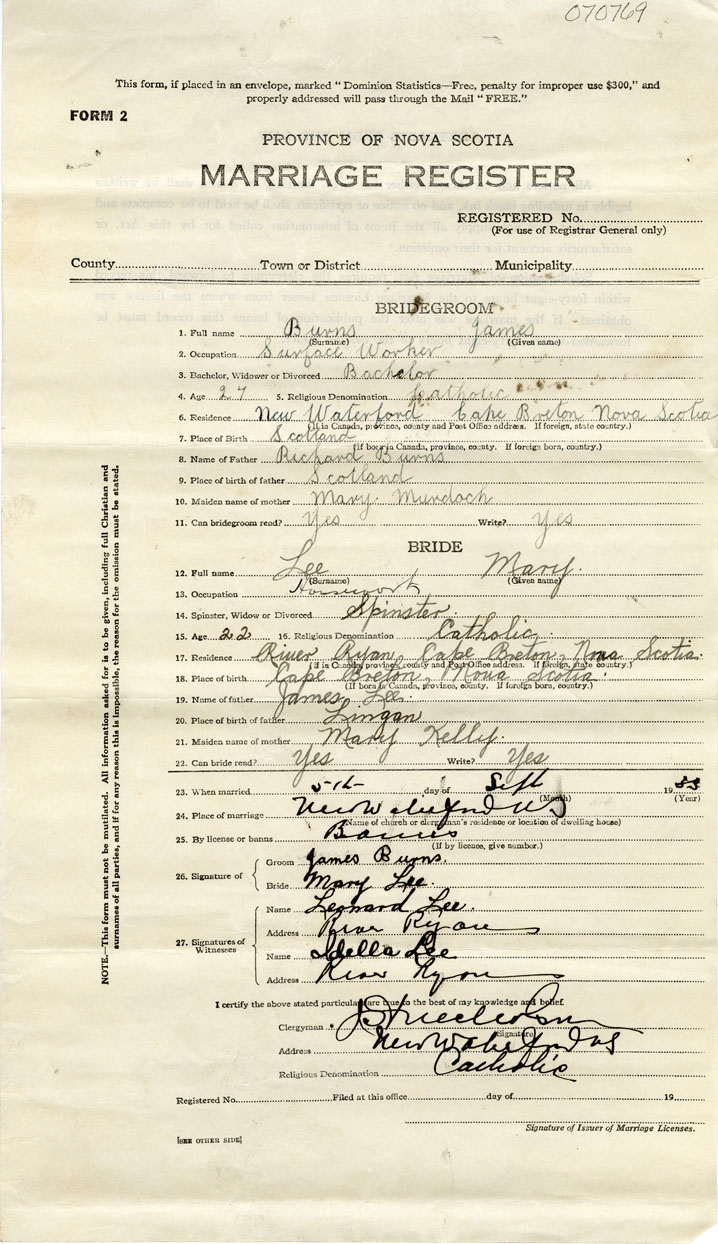 070769
This form, if placed in an envelope, marked "Dominion Statistics—Free, penalty for improper use $300," and
properly addressed will pass through the Mail "FREE."
FORM 2
PROVINCE OF NOVA SCOTIA
MARRIAGE REGISTER
REGISTERED No.
(For use of Registrar General only)
County Town or District Municipality
BRIDEGROOM
1. Full name Burns James
(Surname) (Given name)
2. Occupation Surface Worker
3. Bachelor, Widower or Divorced Bachelor
4. Age 27 5. Religious Denomination Catholic
6. Residence New Waterford Cape Breton Nova Scotia
(If in Canada, province, county and Post Office address. If foreign, state country.)
7. Place of Birth Scotland
(If born in Canada, province, county. If foreign born, country.)
8. Name of Father Richard Burns
9. Place of birth of father Scotland
10. Maiden name of mother Mary Murdoch
11. Can bridegroom read? Yes Write? Yes
BRIDE
12. Full name Lee Mary
(Surname) (Given name)
13. Occupation Housework
14. Spinster, Widow or Divorced Spinster
15. Age 22 16. Religious Denomination Catholic
17. Residence River Ryan, Cape Breton, Nova Scotia.
(If in Canada, province, county and Post Office address. If foreign, state country.)
18. Place of birth Cape Breton, Nova Scotia.
(If born in Canada, province, county. If foreign born, country.)
19. Name of father James Lee
20. Place of birth of father Lingan
21. Maiden name of mother Mary Kelly
22. Can bride read? Yes Write? Yes
23. When married 5th day of Sept 1933
(Month) (Year)
24. Place of marriage New Waterford NS
(Name of church or clergyman's residence or location of dwelling house)
25. By license or banns Banns
(If by licence, give number.)
26. Signature of
Groom James Burns.
Bride Mary Lee.
27. Signatures of Witnesses
Name Leonard Lee.
Address River Ryan
Name Idella Lee
Address River Ryan
I certify the above stated particulars are true to the best of my knowledge and belief.
Clergyman
(Signature)
Address New Waterford NS
Religious Denomination Catholic
Registered No. Filed at this office day of 19
Signature of Issuer of Marriage Licenses.
[SEE OTHER SIDE]
NOTE.—This form must not be mutilated. All information asked for is to be given, including full Christian and
surnames of all parties, and if for any reason this is impossible, the reason for the omission must be stated.